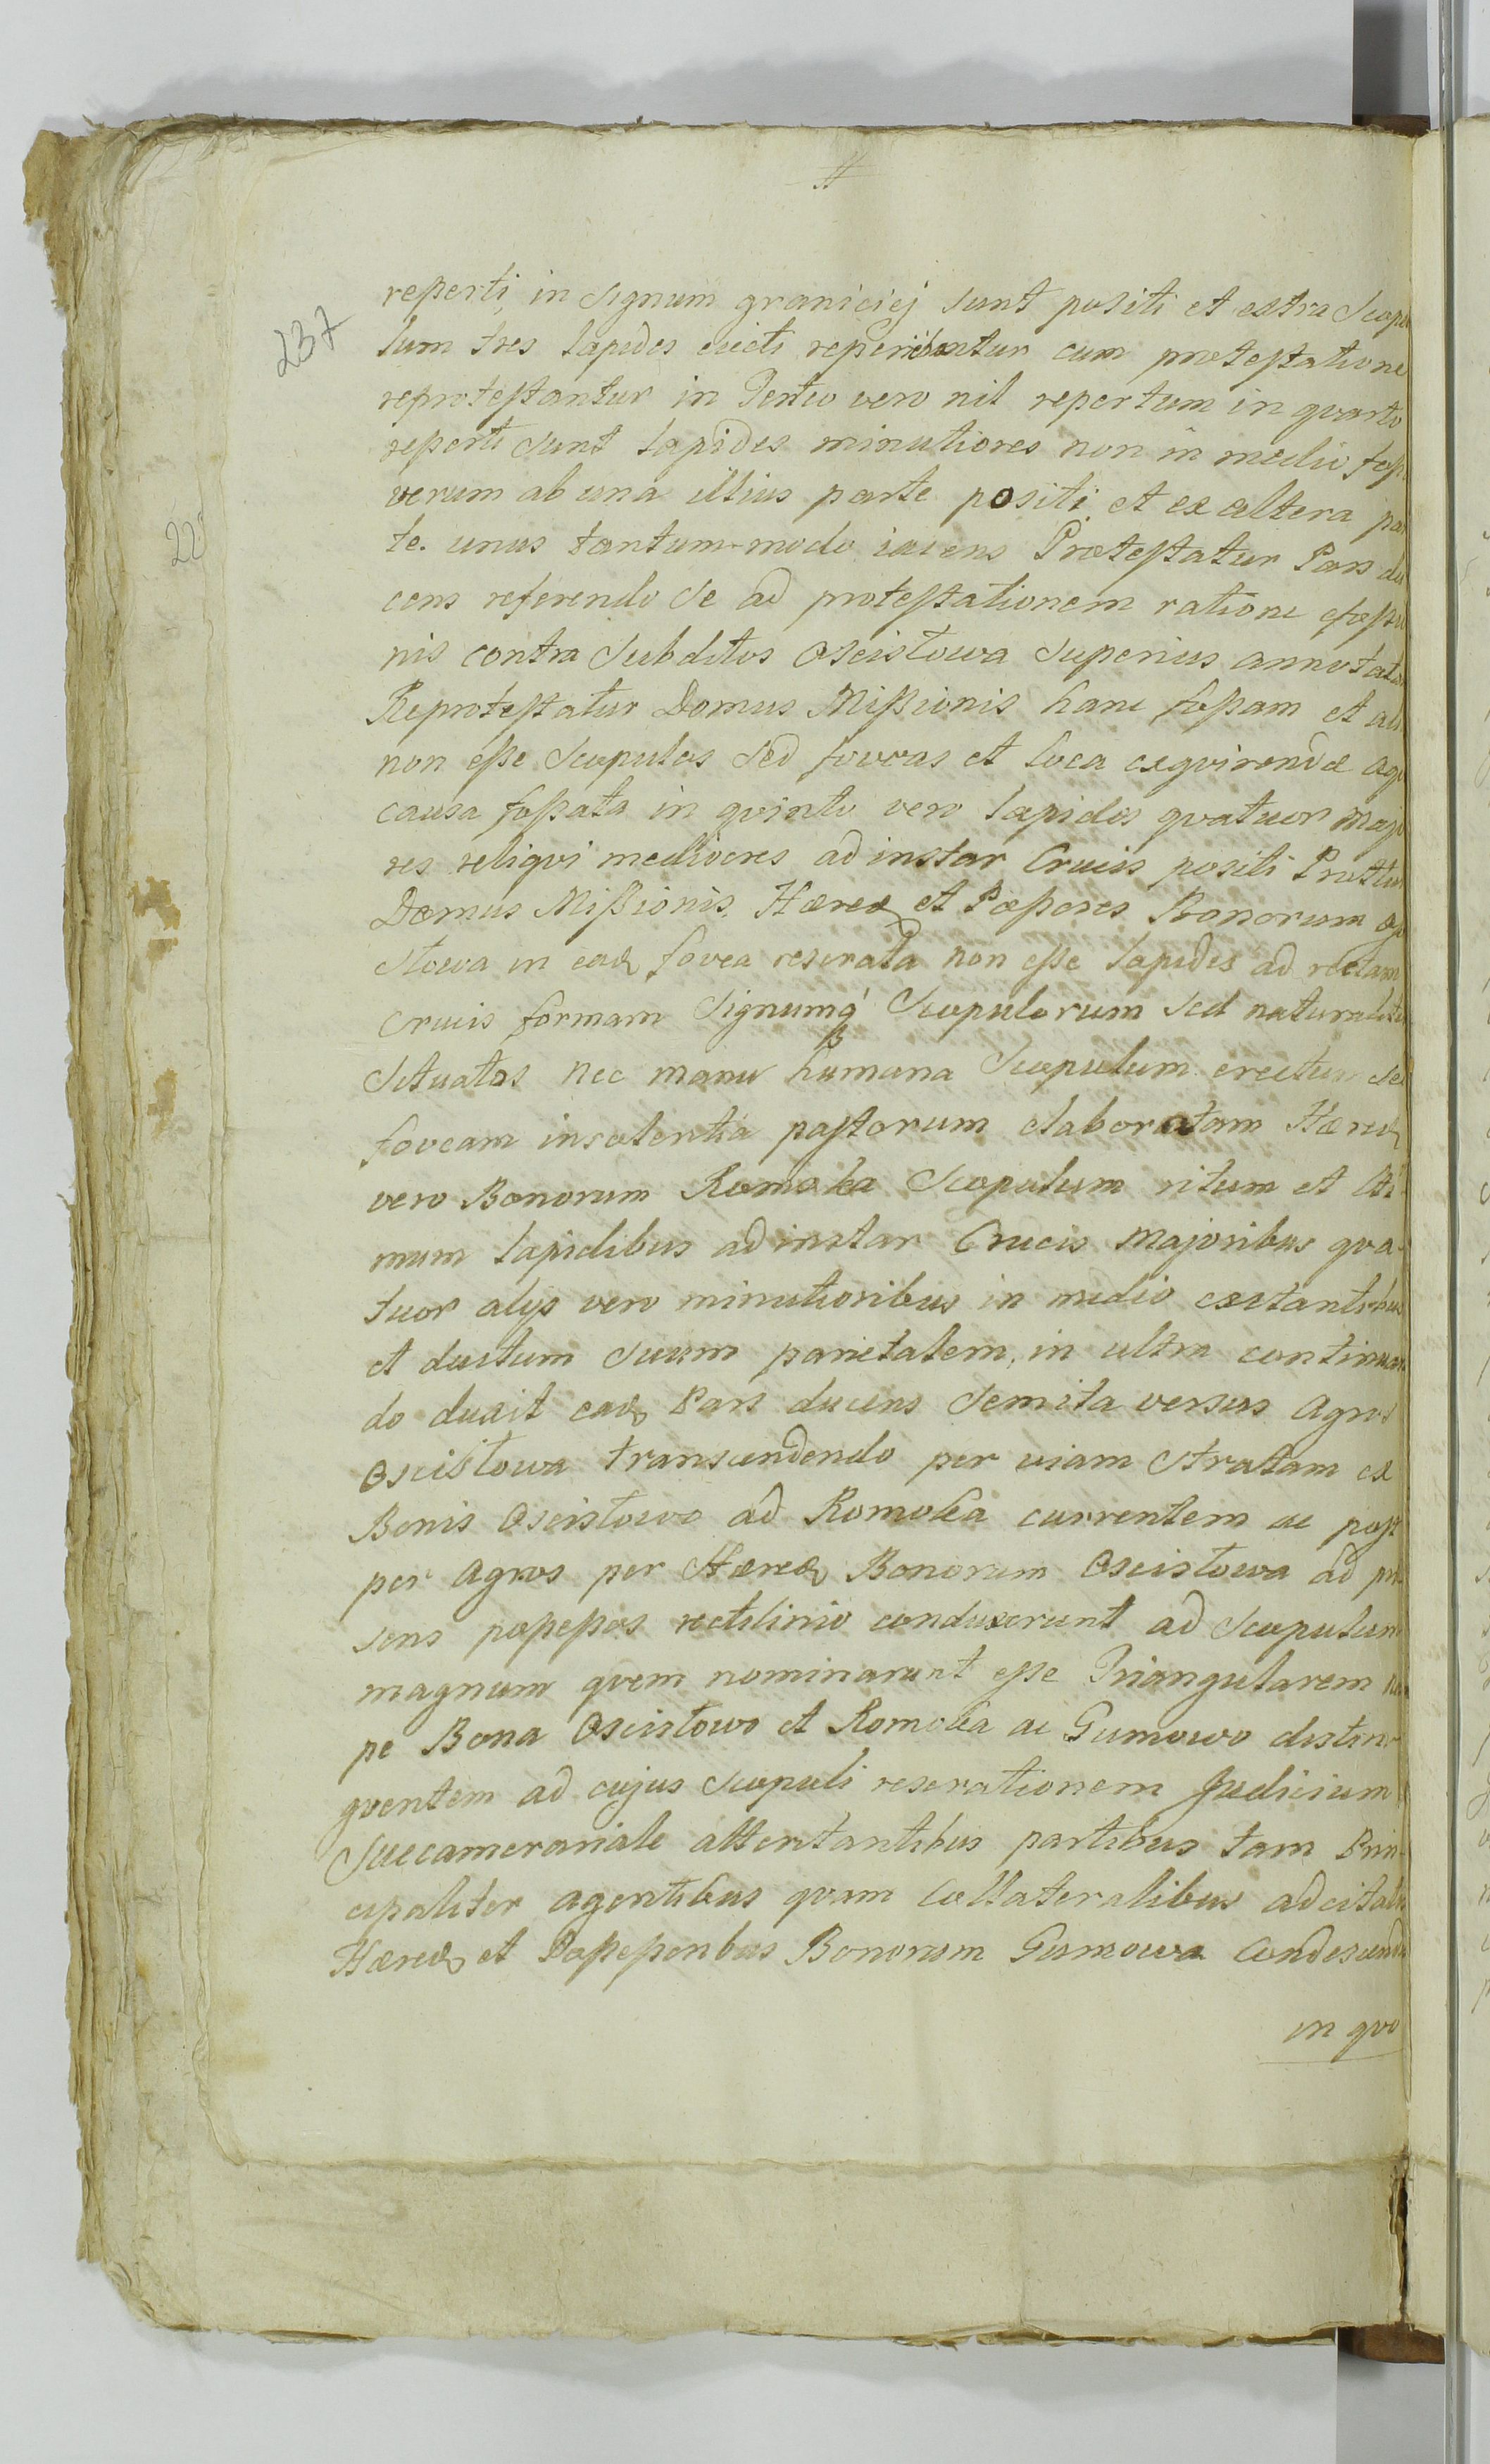 237
22
reperti, in Signum graniciej sunt positi et extra Scopu
lum tres lapides eiecti reperiebantur cum protestatione
reprotestantur in Tertio vero nil repertum in qvarto
reperti sunt lapides minutiores non in medio foss
verum ab una illius parte positi et ex altera par
te. unus tantum-modo iacens Protestatur Pars du
cens referendo se ad protestationem ratione effossio
nis contra Subditos Oscisłowa Superius annotata
Reprotestatur Domus Missionis hanc fossam et ali
non esse Scopulos sed foveas et loca exqvirendæ aqv
causa fossata in qvinto vero lapides qvatuor majo
res reliqvi mediocres ad instar Crucis positi Prottur
Domus Missionis Hæred et Possores Bonorum Osci
słowa in ead fovea reserata non esse lapides ad rectam
crucis formam Signumq Scopulorum sed naturaliter
Situatos nec manu humana Scopulum erectum sed
foveam insolentia pastorum elaboratam Hæred
vero Bonorum Romoka Scopulum ritum et legiti
mum lapidibus ad instar Crucis majoribus qva-
tuor alys vero minutioribus in medio extantibus
et ductum suum parietalem, in ultra continuan
do duxit ead Pars ducens Semita versus Agros
Oscisłowa transcendendo per viam Stratam ex
Bonis Oscisłowo ad Romoka currentem ac post
per agros per Hæred Bonorum Oscisłowa ad præ
sens possessos rectilinio conduxerunt ad Scopulum
magnum qvem nominarunt esse Triangularem nem
pe Bona Oscisłowo et Romoka ac Gumowo distin-
gventem ad cujus Scopuli reserationem Judicium
Succamerariale attentantibus partibus tam Prin-
cipaliter agentibus qvam Collateralibus adcitatis
Hæred et Possessoribus Bonorum Gumowa Condescendit
in qvo